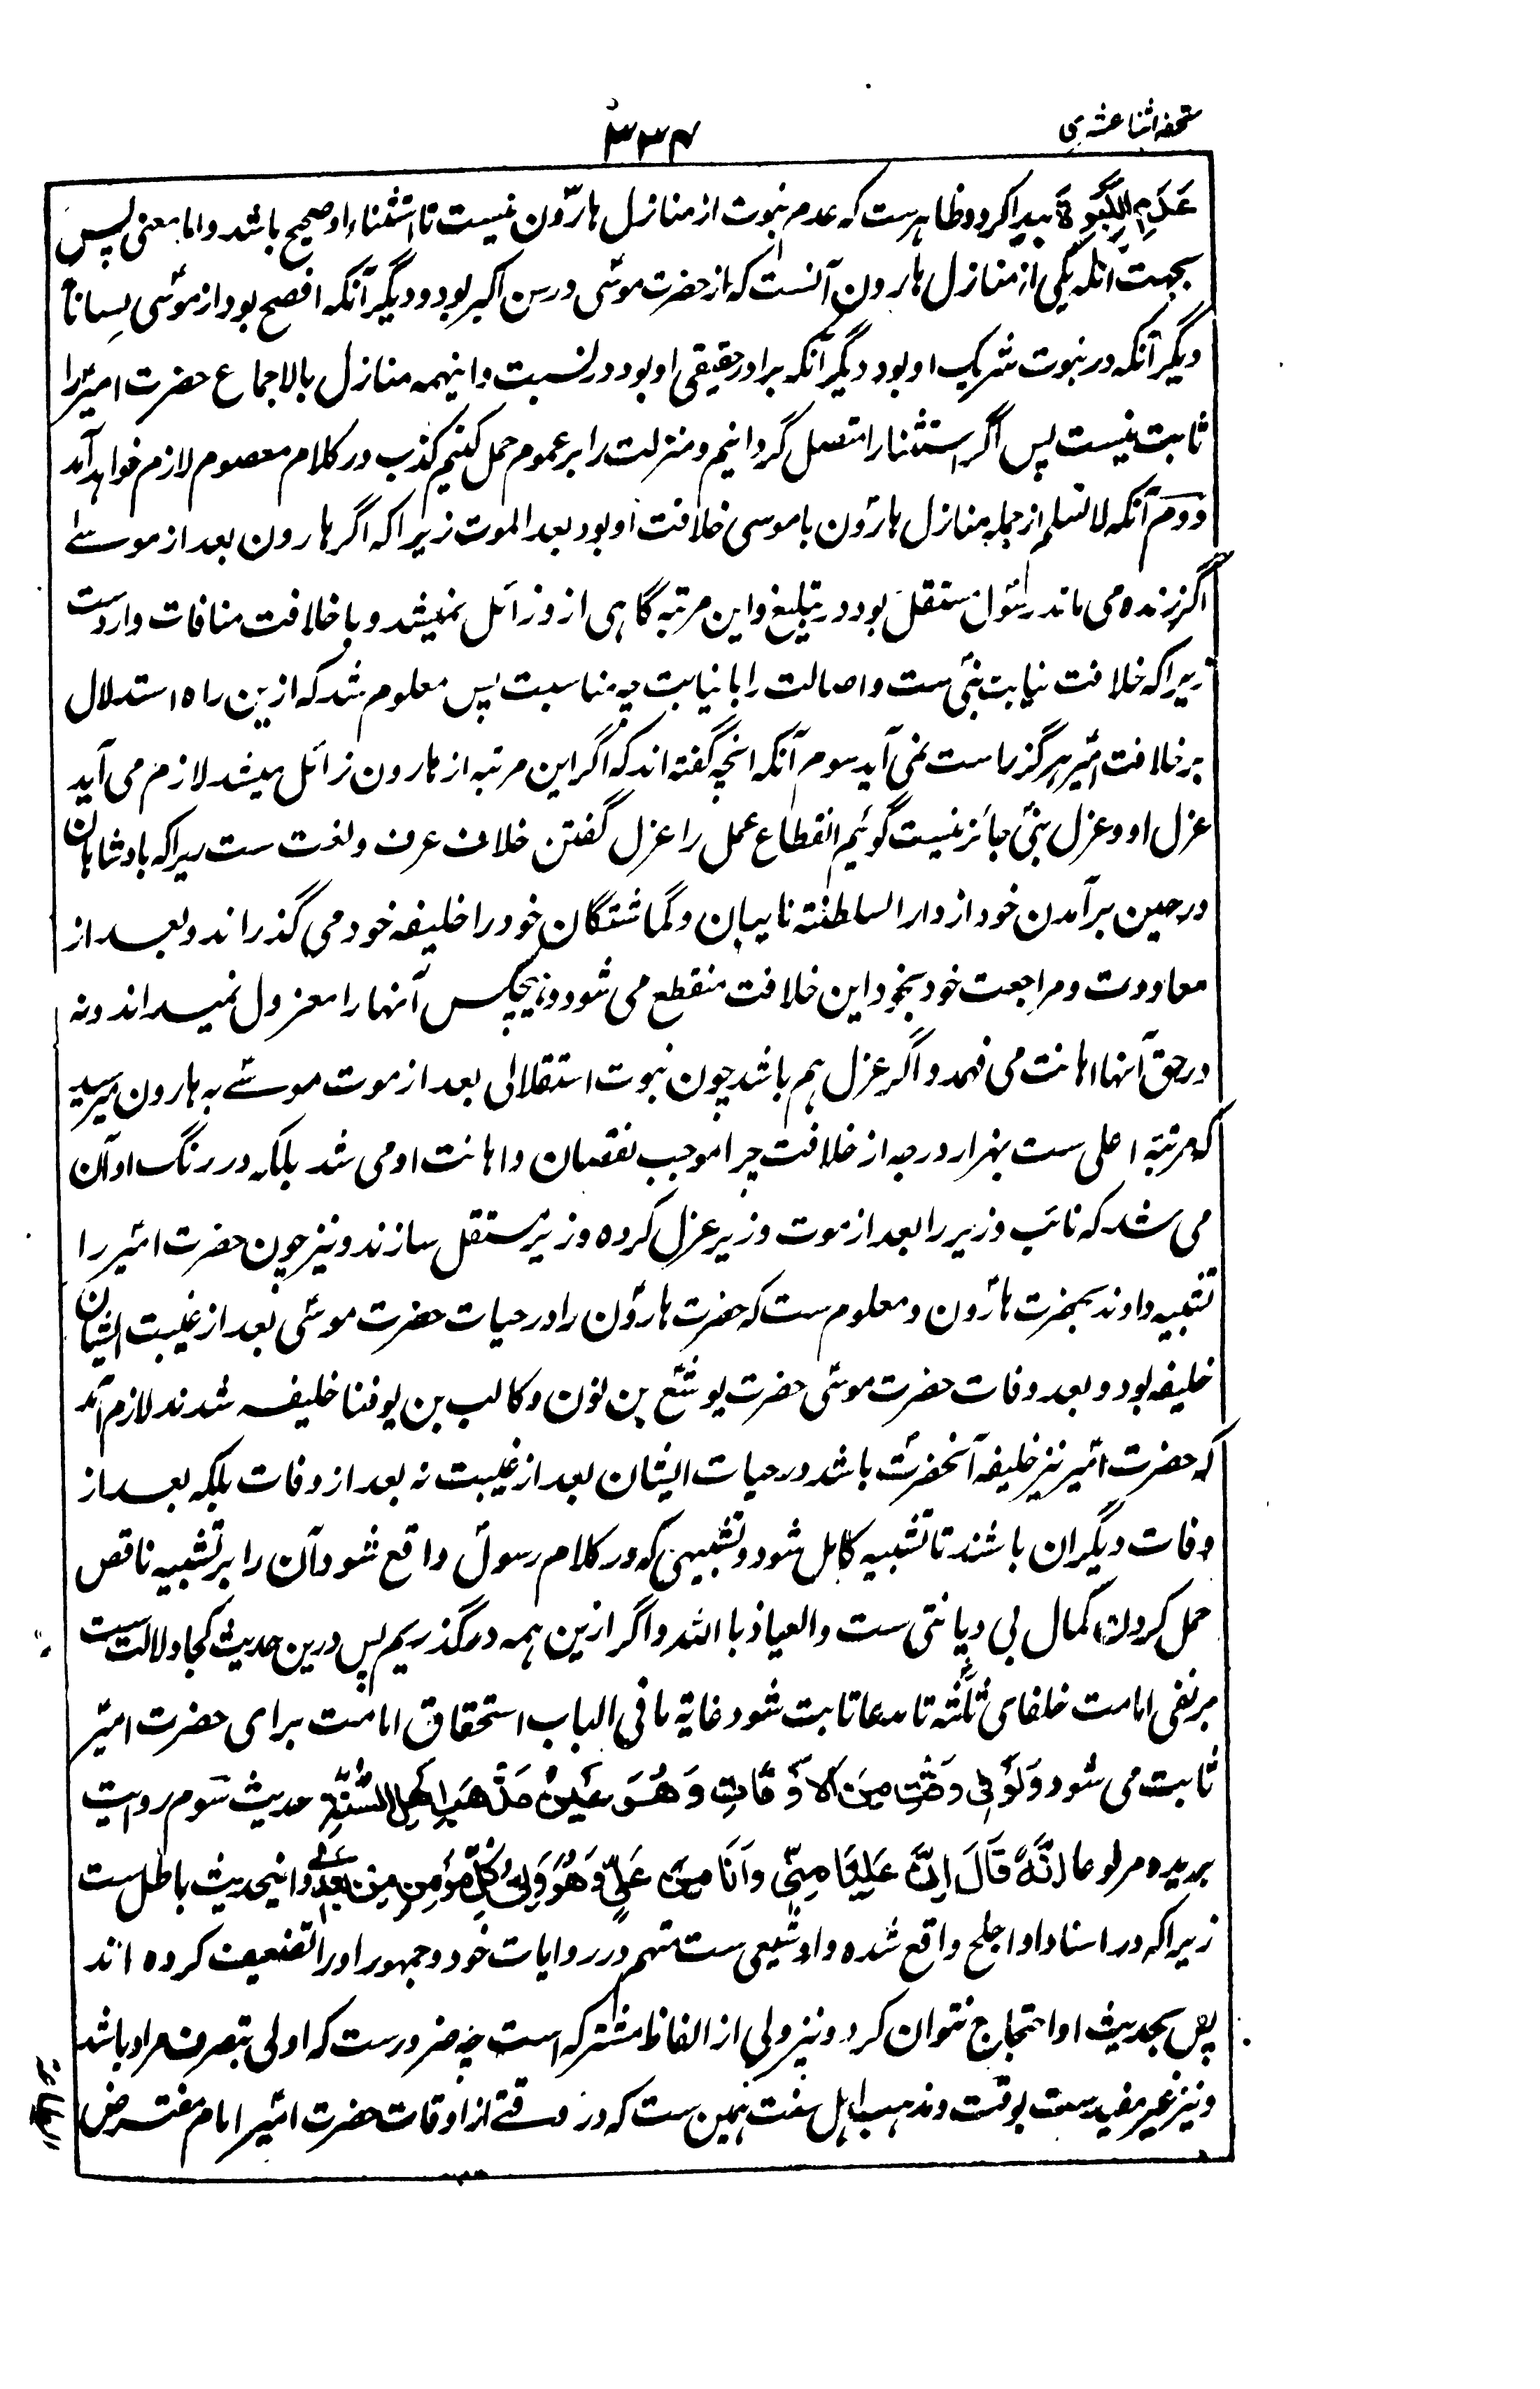 تحفه اثنا عشری
۳۳۴
عَدَمِ النُّبُوَّةِ پیدا کرد و ظاهرست که عدم نبوت از منازل هارون نیست تا استثناء او صحیح باشد و اما معنی پس
بجهت آنکه یکی از منازل هارون آنست که از حضرت موسی در سن اکبر بود و دیگر آنکه افصح بود از موسی لسانا
دیگر آنکه در نبوت شریک او بود دیگر آنکه برادر حقیقی او بود در نسبت و اینهمه منازل بالاجماع حضرت امیر را
ثابت نیست پس اگر استثنا را متصل گردانیم و منزلت را بر عموم حمل کنیم کذب در کلام معصوم لازم خواهد آمد
دوم آنکه لا نسلم از جمله منازل هارون با موسی خلافت او بود بعد الموت زیرا که اگر هارون بعد از موسے
اگر زنده می ماند رسول مستقل بود در تبلیغ و این مرتبه گاهی ازو زائل نمیشد و با خلافت منافات واردست
زیرا که خلافت نیابت نبی ست و اصالت را با نیابت چه مناسبت پس معلوم شد که ازین راه استدلال
بر خلافت امیر هرگز راست نمی آید سوم آنکه انچه گفته اند که اگر این مرتبه از هارون زائل میشد لازم می آید
عزل او و عزل نبی جائز نیست گوئیم انقطاع عمل را عزل گفتن خلاف عرف و لغت ست زیرا که بادشاهان
در حین برآمدن خود از دار السلطنته نایبان و گماشتگان خود را خلیفه خود می گذرانند و بعد از
معاودت و مراجعت خود بخود این خلافت منقطع می شود و هیچکس آنها را معزول نمیداند و نه
در حق آنها اهانت می فهمد و اگر عزل هم باشد چون نبوت استقلالی بعد از موت موسے به هارون میرسید
که مرتبه اعلی ست بهزار درجه از خلافت چرا موجب نقصان و اهانت او می شد بلکه در رنگ او آن
می شد که نائب وزیر را بعد از موت وزیر عزل کرده وزیر مستقل سازند و نیز چون حضرت امیر را
تشبیه دادند بحضرت هارون و معلوم ست که حضرت هارون را در حیات حضرت موسی بعد از غیبت ایشان
خلیفه بود و بعد وفات حضرت موسی حضرت یوشع بن نون و کالب بن یوفنا خلیفه شدند لازم آمد
که حضرت امیر نیز خلیفه آنحضرت باشد در حیات ایشان بعد از غیبت نه بعد از وفات بلکه بعد از
وفات دیگران باشند تا تشبیه کامل شود و تشبیهی که در کلام رسول واقع شود آن را بر تشبیه ناقص
حمل کردن کمال بی دیانتی ست والعیاذ بالله و اگر ازین همه درگذریم پس درین حدیث کجا دلالت ست
بر نفی امامت خلفای ثلثه تا مدعا ثابت شود غایة ما فی الباب استحقاق امامت برای حضرت امیر
ثابت می شود وَلَوْ فِی وَقْتٍ مِنَ الاَوْقَاتِ وَهُوَ عَیْنُ مَذْهَبِ اَهْلِ السُّنَّةِ حدیث سوم روایت
بریده مرفوعا اَنَّهُ قَالَ اِنَّ عَلِیًّا مِنِّی وَاَنَا مِنْ عَلِیٍّ وَهُوَ وَلِیُّ کُلِّ مُؤْمِنٍ مِنْ بَعْدِے و اینحدیث باطل ست
زیرا که در اسناد او اجلح واقع شده و او شیعی ست متهم در روایات خود و جمهور او را تضعیف کرده اند
پس بحدیث او احتجاج نتوان کرد و نیز ولی از الفاظ مشترکه است چه ضرورست که اولی بتصرف مراد باشد
و نیز غیر مقیدست بوقت و مذهب اهل سنت همین ست که در وقتے از اوقات حضرت امیر امام مفترض